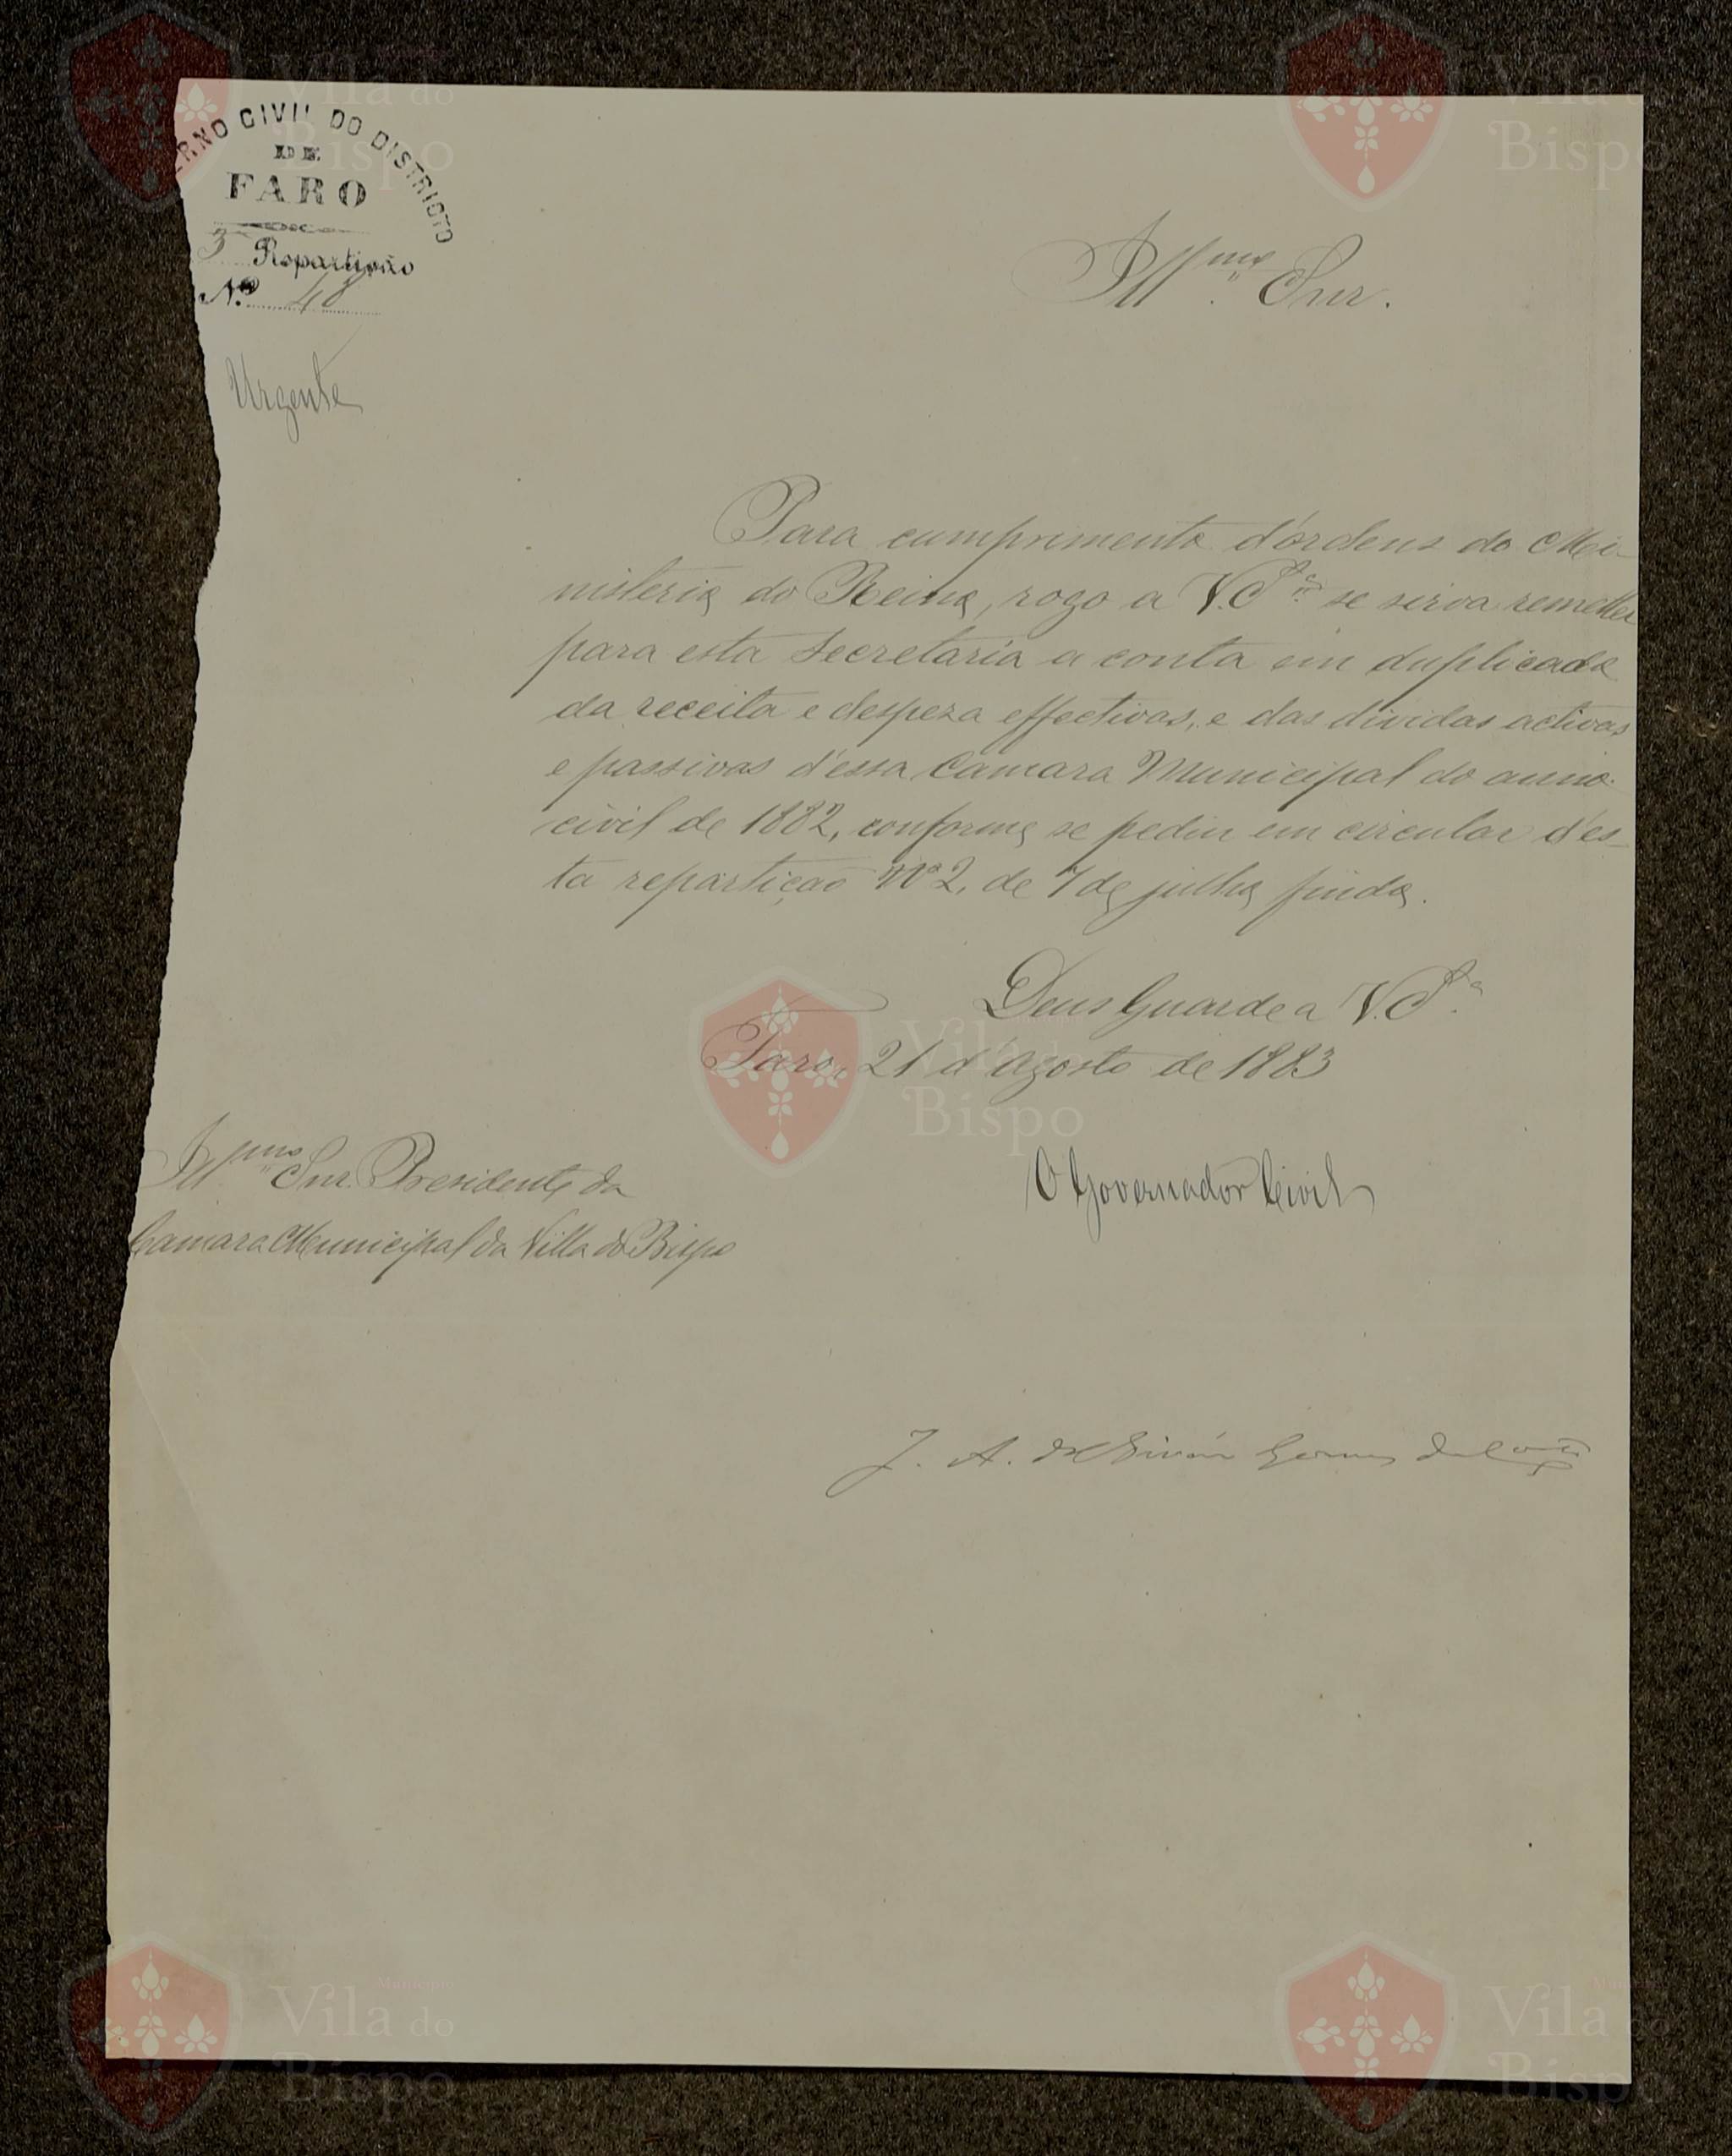 ERNO CIVIL DO DISTRICTO
DE
FARO
3 Repartição
N.º 48
Urgente
Illmo. Snr.
Para cumprimento d'ordens do Mi-
nisterio do Reino, rogo a V. Sª. se sirva remetter
para esta Secretaria a conta em duplicado
da receita e despeza effectivas, e das dividas activas
e passivas d'essa Camara Municipal do anno
civil de 1882, conforme se pediu em circular d'es-
ta repartição Nº 2, de 7 de julho findo.
Deus Guarde a V. Sª.
Faro, 21 d'Agosto de 1883
Illmo. Snr. Presidente da
Camara Municipal da Villa do Bispo
O Governador Civil
J. A. de
Vila do
Bispo
Vila
Bispo
Vila do
Bispo
Município
Vila do
Bispo
Vila do
Bispo